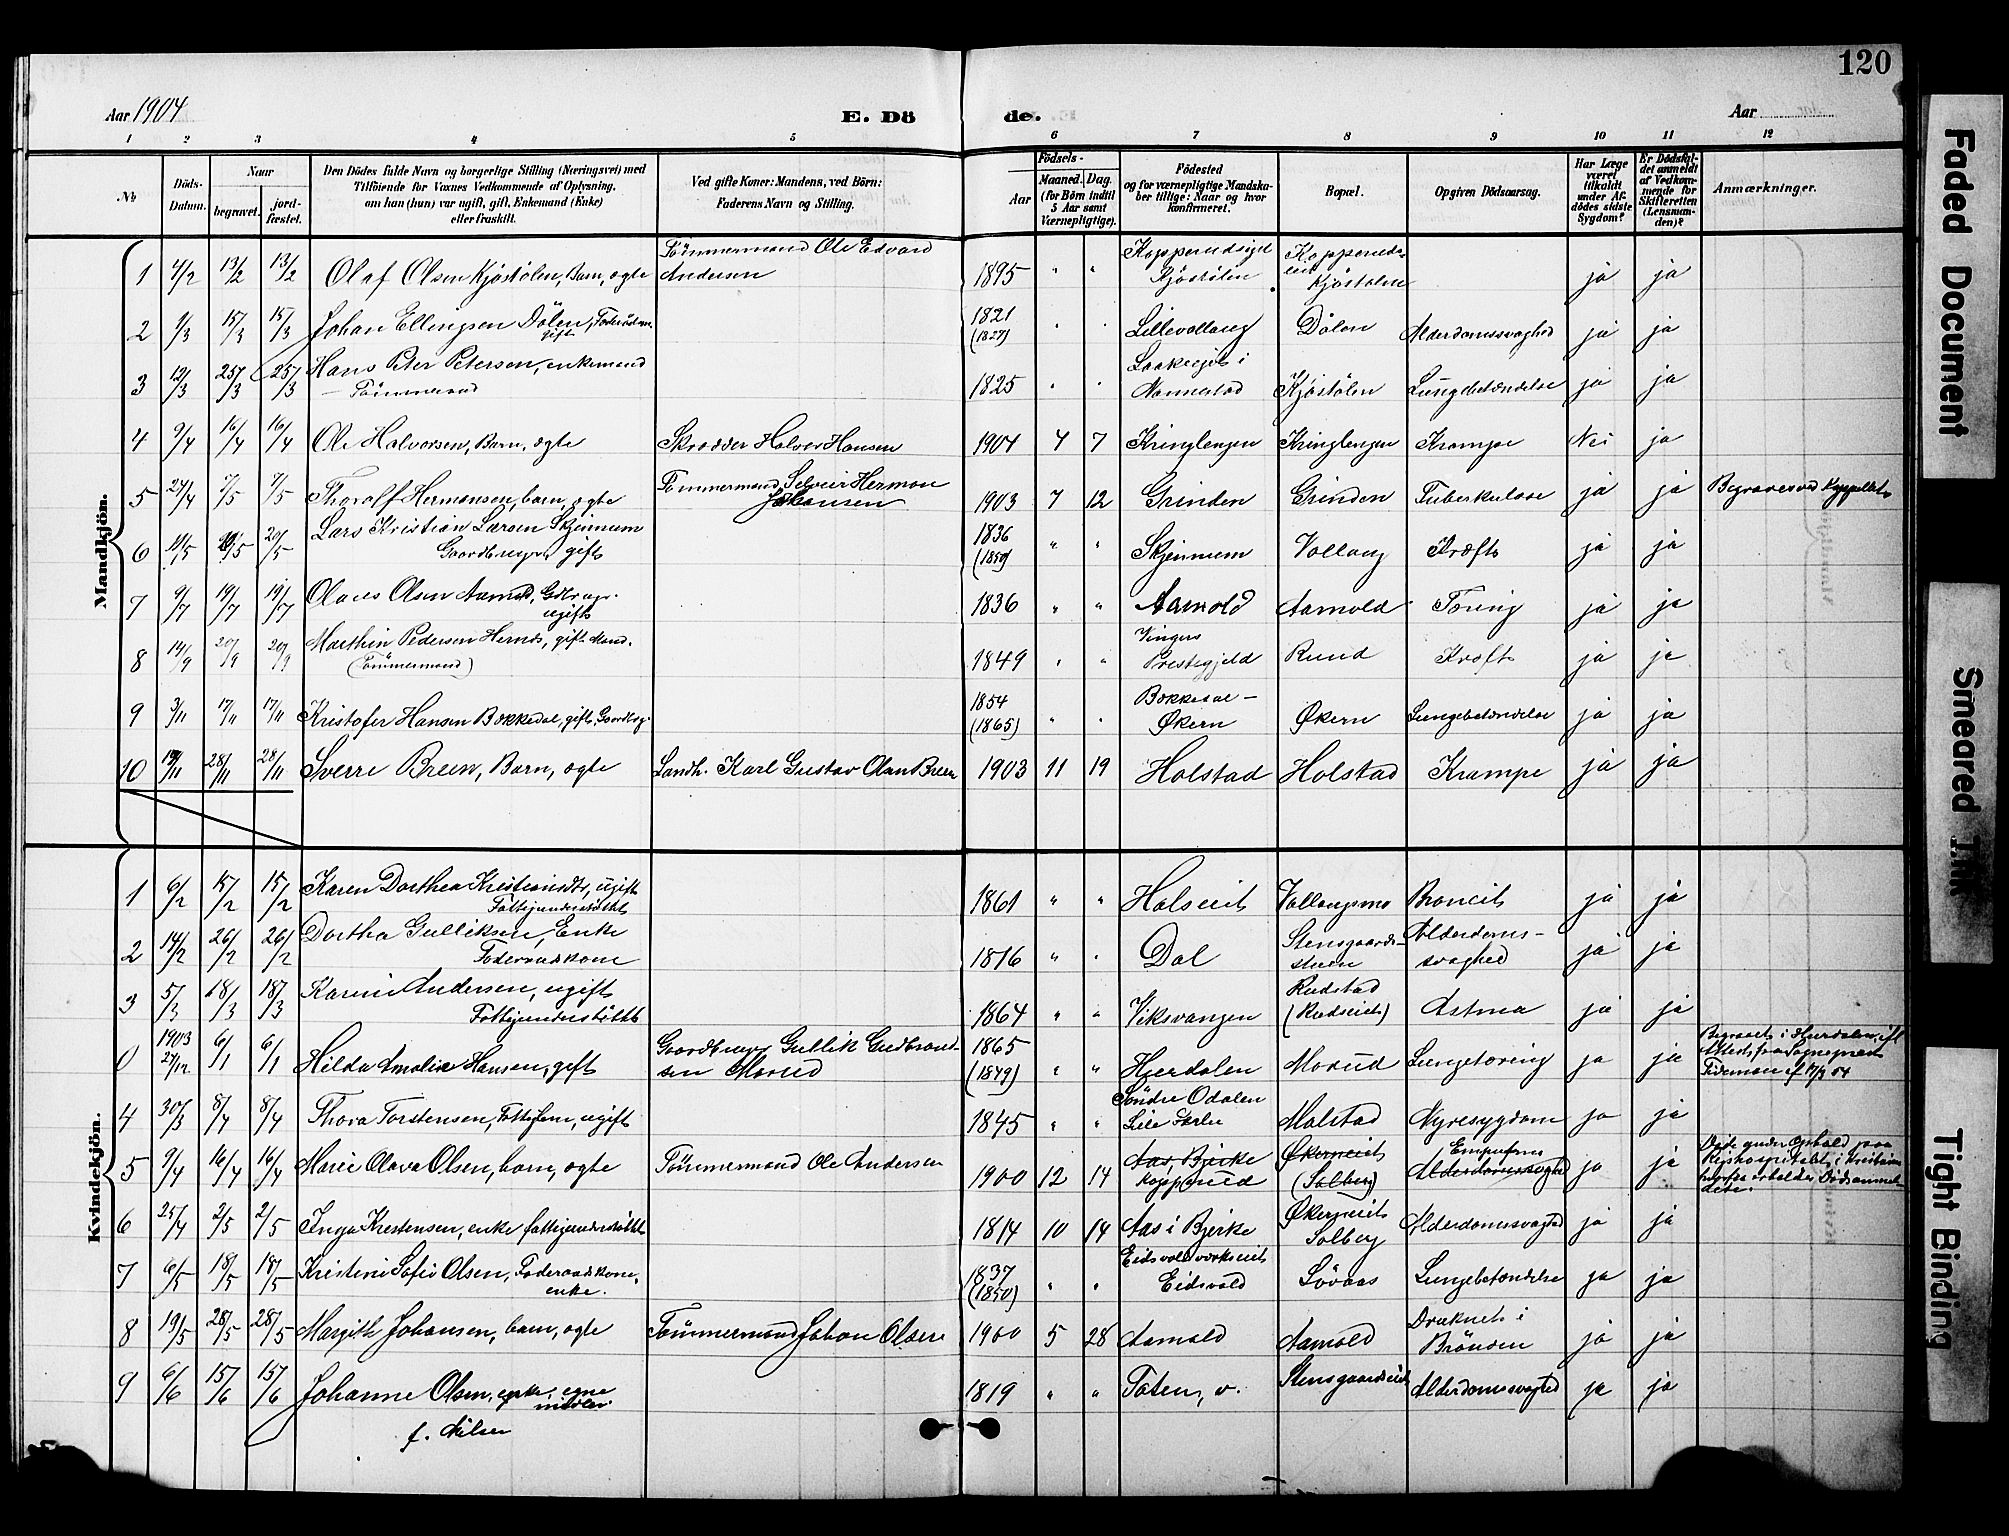 120
Aar 1904
E. Dö
de.
Aar
1 2 3 4 5 6 7 8 9 10 11 12
No
Döds-Datum.
Naar
begravet.
jord-fæstet.
Den Dödes fulde Navn og borgerlige Stilling (Næringsvei) med
Tilföiende for Voxnes Vedkommende af Oplysning,
om han (hun) var ugift, gift, Enkemand (Enke)
eller fraskilt.
Ved gifte Koner: Mandens, ved Börn:
Faderens Navn og Stilling.
Födsels-
Aar
Maaned. Dag.
(for Börn indtil
5 Aar samt
Værnepligtige).
Födested
og for værnepligtige Mandska-
ber tillige: Naar og hvor
konfirmeret.
Bopæl.
Opgiven Dödsaarsag.
Har Læge
været
tilkaldt
under Af-
dödes sidste
Sygdom?
Er Dödsfal-
det anmeldt
af Vedkom-
mende for
Skifteretten
(Lensman-
den)?
Anmærkninger.
Mandkjön.
1 4/2 13/2 13/2 Olaf Olsen Kjøstølen, Barn, ægte Tömmermand Ole Edvard Andersen 1895 " " Kjøstølen Kjøstølen ja ja
2 9/3 15/3 15/3 Johan Ellingsen Dölen, gift 1821 (1827) " " Lillevollaug Dölen Alderdomssvaghed ja ja
3 12/3 25/3 25/3 Hans Peter Petersen, enkemand Tömmermand 1825 " " i Nannestad Kjøstölen Lungebetændelse ja ja
4 9/4 16/4 16/4 Ole Halvorsen, Barn, ægte Skrædder Halvor Hansen 1904 4 7 Kringlengen Kringlengen Krampe Nei ja
5 27/4 7/5 7/5 Thorolf Hermansen, barn, ægte Tömmermand Herman Johansen 1903 7 12 Grinden Grinden Tuberkulose ja ja Begraves ved Kappellet
6 11/5 20/5 20/5 Lars Kristian Larsen Skjennum Gaardbruger, gift 1836 (1850) " " Skjennum Vollaug Kræft ja ja
7 9/7 19/7 19/7 Olaves Olsen ugift 1836 " " Aamold Aamold Tæring ja ja
8 14/9 20/9 20/9 Marthin Pedersen gift Mand. (Tömmermand) 1849 " " Vingers Prestegjeld Rund Kræft ja ja
9 3/11 17/11 17/11 Kristofer Hansen Bækkedal, gift, Gaardbrg. 1854 (1865) " Bækkedal - Økern Økern Lungebetændelse ja ja
10 19/11 28/11 28/11 Sverre Breen, Barn, ægte Landh. Karl Gustav Olsen Breen 1903 11 19 Holstad Holstad Krampe ja ja
Kvindekjön.
1 6/2 15/2 15/2 Karen Dorthea ugift Fattigunderstöttet 1861 " " Vollaugsmo ja ja
2 14/2 26/2 26/2 Dorthea Gulliksen, Enke Föderaadskone 1816 " " Dal Alderdoms-svaghed ja ja
3 5/3 18/3 18/3 Karen Andersen, ugift Fattigunderstöttet 1864 " " Viksvangen Rudstad (Rudseiet) Astma ja ja
0 1903 27/12 6/1 6/1 Hilda Amalie Hansen, gift Gaardbruger Gullik Gudbrand-sen Morud 1865 (1849) " " Hurdalen Morud Lungetæring ja ja Begravet i Hurdalen ifl Attest fra Sognepræst
4 30/3 8/4 8/4 Thora Torstensen, Fattiglem, ugift 1845 " " Söndre Odalen Molstad Nyresygdom ja ja
5 9/4 16/4 16/4 Marie Olava Olsen, barn, ægte Tömmermand Ole Andersen 1900 12 14 Aas, Bjerke Økerneiet (Solberg) Alderdomssvaghed ja ja Döde under Ophold paa Rigshospitalet i Kristiania
6 25/4 2/5 2/5 Inga Kristensen, enke fattigunderstöttet 1814 10 14 Aas i Bjerke Økerneiet Solberg Alderdomssvaghed ja ja
7 6/5 18/5 18/5 Kristine Sofie Olsen, Föderaadskone, enke. 1837 (1850) " " Eidsvold Lövaas Lungebetændelse ja ja
8 19/5 28/5 28/5 Margith Johansen, barn, ægte Tömmermand Johan Olsen 1900 5 28 Aamold Aamold Druknet i Brönden ja ja
9 6/6 15/6 15/6 Johanne Olsen, enke, egne midler. 1819 " " Toten, v. Stensgaardseiet Alderdomssvaghed ja ja
f. Nilsen
Faded Document
Smeared Ink
Tight Binding